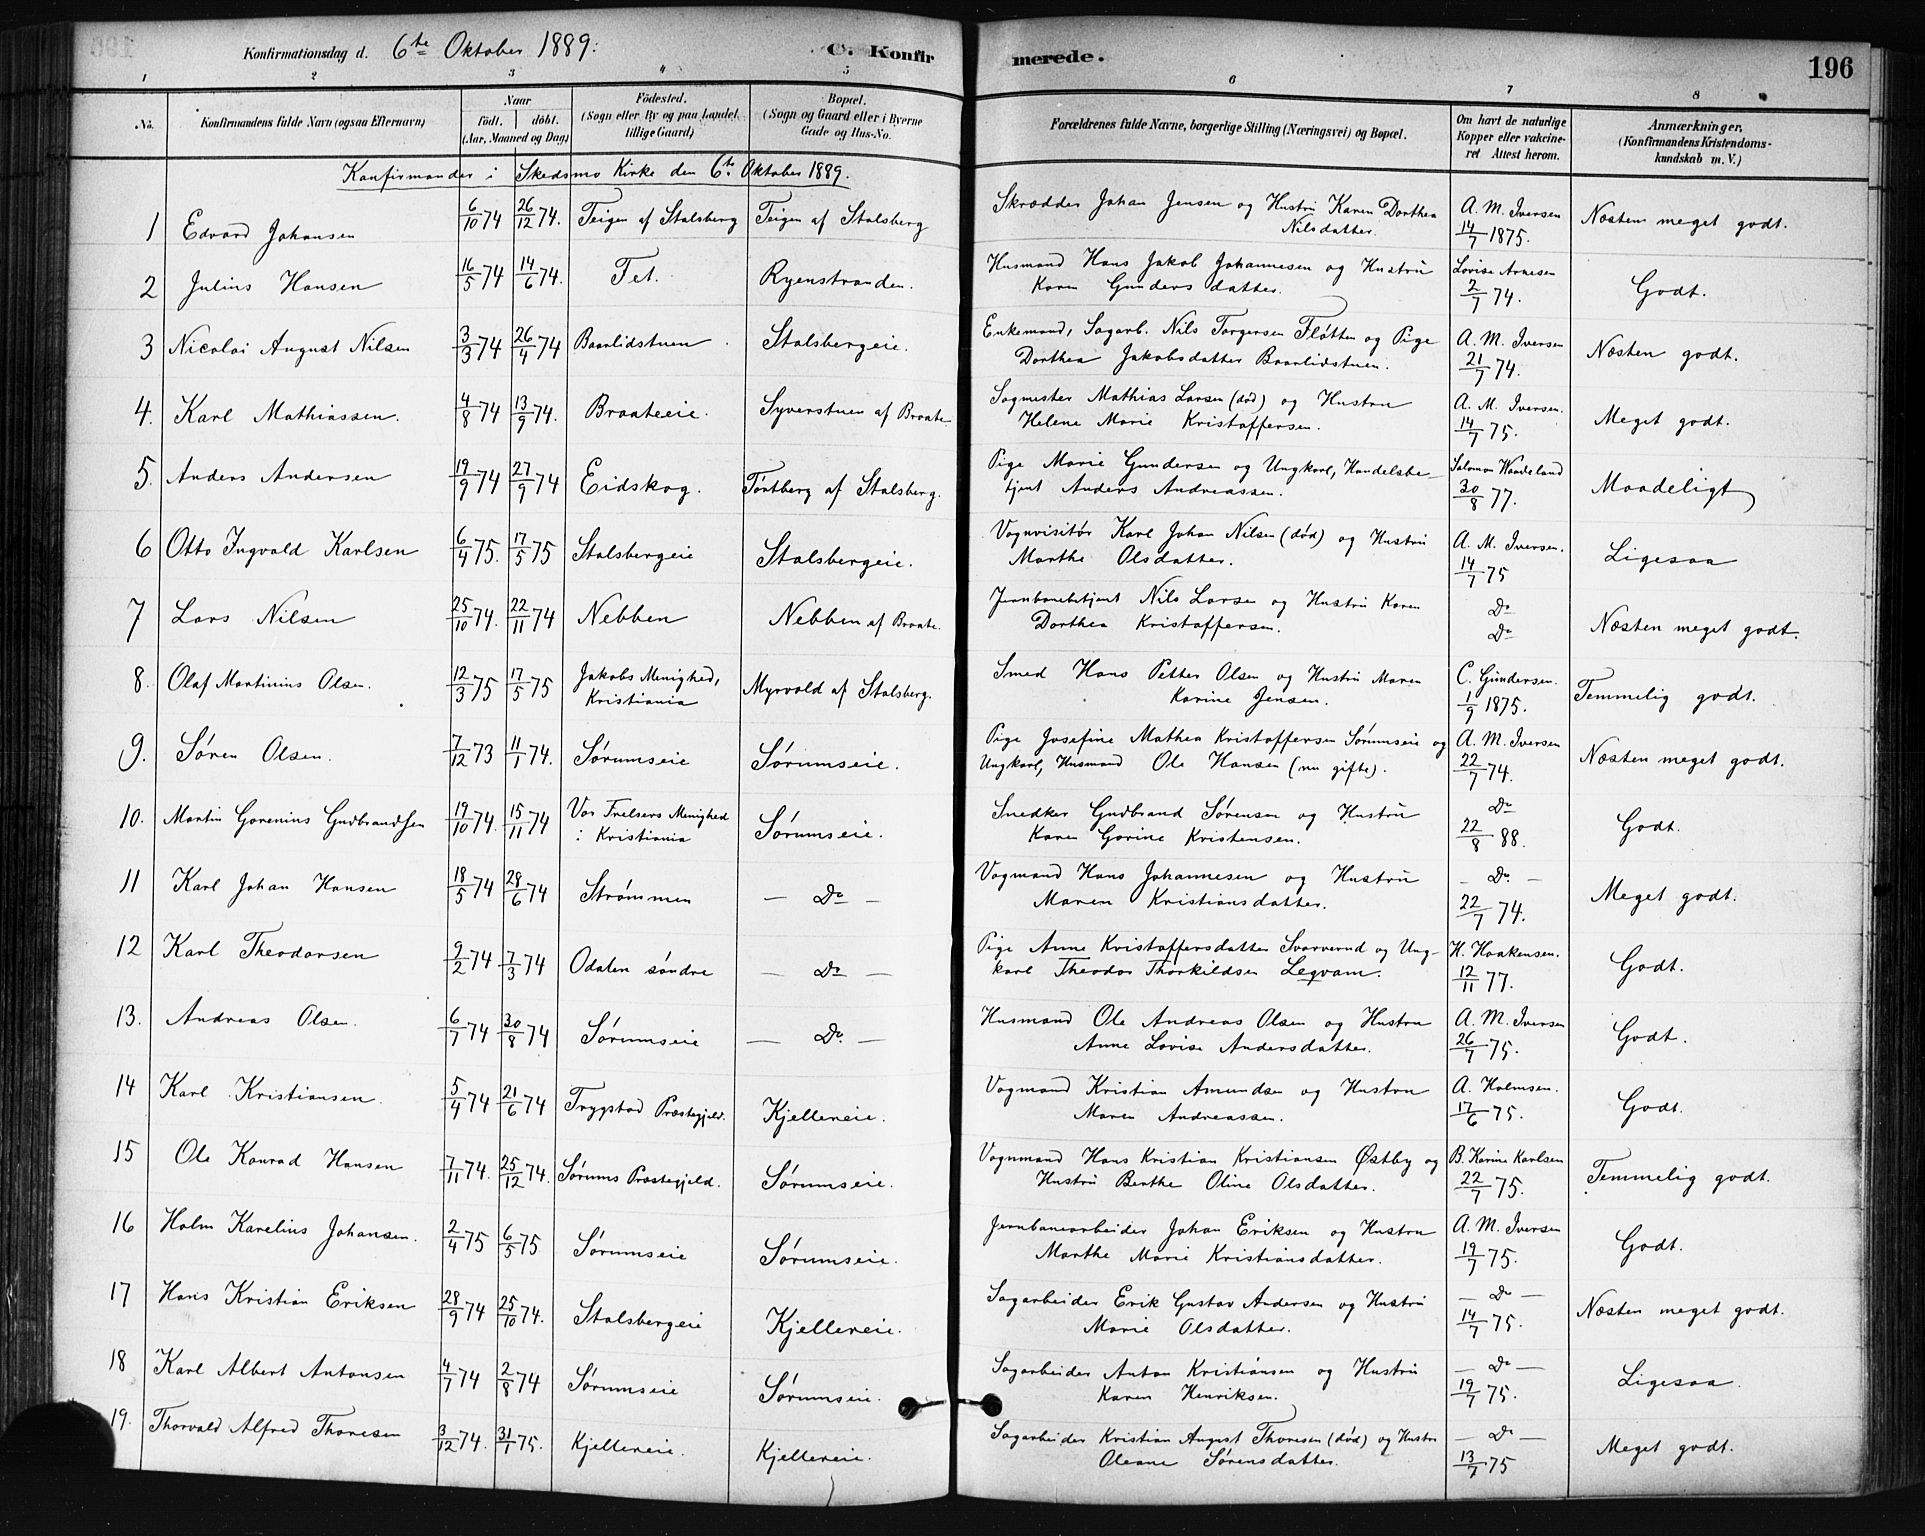 Konfirmationsdag d. 6te Oktober 1889: C. Konfir merede. 196
1 2 3 4 5 6 7 8
No. Konfirmandens fulde Navn (ogsaa Efternavn) Naar födt. döbt. (Aar, Maaned og Dag) Födested. (Sogn eller By og paa Landet tillige Gaard) Bopæl. (Sogn og Gaard eller i Byerne Gade og Hus-No. Forældrenes fulde Navne, borgerlige Stilling (Næringsvei) og Bopæl. Om havt de naturlige Kopper eller vakcineret Attest herom. Anmærkninger, (Konfirmandens Kristendomskundskab m. V.)
Konfirmander i Skedsmo Kirke den 6te Oktober 1889.
1 Edvard Johansen 6/10 74 26/12 74. Teigen af Stalsberg Teigen af Stalsberg Skrædder Johan Jensen og Hustru Karen Dorthea A. M. Iversen Næsten meget godt.
Nilsdatter. 14/7 1875.
2 Julius Hansen 16/5 74 14/6 74. Fet. Ryenstranden. Husmand Hans Jakob Johannesen og Hustru Lovise Arnesen Godt.
Karen Gundersdatter. 2/7 74.
3 Nicolai August Nilsen 3/3 74 26/4 74 Baarlidstuen Stalsbergeie. Enkemand, Sagarb. Nils Torgersen Fløtten og Pige A. M. Iversen Næsten godt.
Dorthea Jakobsdatter Baarlidstuen. 21/7 74.
4. Karl Mathiassen. 4/8 74 13/9 74. Braateeie. Syverstuen af Braate Sagmester Mathias Larsen (død) og Hustru A. M. Iversen. Meget godt.
Helene Marie Kristoffersen. 14/7 75.
5. Anders Andersen 19/9 74 27/9 74 Eidskog. Tørtberg af Stalsberg. Pige Marie Gundersen og Ungkarl, Handelsbe- Salomon Waadeland Maadeligt
tjent Anders Andreassen. 30/8 77.
6 Otto Ingvald Karlsen 6/4 75. 17/5 75 Stalsbergeie Stalsbergeie. Vognvisitør Karl Johan Nilsen (død) og Hustru A. M. Iversen. Ligesaa
Marthe Olsdatter. 14/7 75
7 Lars Nilsen 25/10 74. 22/11 74 Nebben Nebben af Braate. Jernbanebetjent Nils Larsen og Hustru Karen Do Næsten meget godt.
Dorthea Kristoffersen. Do
8. Olaf Martinius Olsen. 12/3 75 17/5 75 Jakobs Menighed, Kristiania Myrvold af Stalsberg. Smed Hans Petter Olsen og Hustru Maren C. Gundersen. Temmelig godt.
Karine Jensen. 1/9 1875.
9. Søren Olsen. 7/12 73 11/1 74. Sørumseie Sørumseie. Pige Josefine Mathea Kristoffersen Sørumseie og A. M. Iversen Næsten meget godt.
Ungkarl, Husmand Ole Hansen (nu gifte). 22/7 74.
10. Martin Gorenius Gudbrandsen 19/10 74. 15/11 74 Vor Frelsers Menighed i Kristiania Sørumseie. Snedker Gudbrand Sørensen og Hustru Do Godt.
Karen Gorine Kristensen. 22/8 88.
11 Karl Johan Hansen 18/5 74 28/6 74 Strømmen — Do — Vogmand Hans Johannesen og Hustru — Do. — Meget godt.
Maren Kristiansdatter. 22/7 74.
12 Karl Theodorsen 9/2 74 7/3 74 Odalen søndre — Do — Pige Anne Kristoffersdatter Svarverud og Ung- H. Haakensen. Godt.
karl Theodor Thorkildsen Legvam. 12/11 77.
13. Andreas Olsen. 6/7 74 30/8 74 Sørumseie — Do. — Husmand Ole Andreas Olsen og Hustru A. M. Iversen Godt.
Anne Lovise Andersdatter. 26/7 75.
14 Karl Kristiansen. 5/4 74 21/6 74 Trygstad Præstegjeld. Kjellereie. Vogmand Kristian Amundsen og Hustru A. Holmsen. Godt.
Maren Andreassen. 17/6 75.
15 Ole Konrad Hansen 7/11 74. 25/12 74. Sørums Præstegjeld. Sørumseie. Vognmand Hans Kristian Kristiansen Østby og B. Karine Karlsen Temmelig godt.
Hustru Berthe Oline Olsdatter. 22/7 75.
16 Holm Karelius Johansen. 2/4 75 6/5 75 Sørumseie Sørumseie. Jernbanearbeider Johan Eriksen og Hustru A. M. Iversen Godt.
Marthe Marie Kristiansdatter. 19/7 75.
17 Hans Kristian Eriksen 28/9 74 25/10 74. Stalsbergeie Kjellereie. Sagarbeider Erik Gustav Andersen og Hustru — Do — Næsten meget godt.
Marie Olsdatter. 14/7 75.
18 Karl Albert Antonsen 4/7 74 2/8 74 Sørumseie Sørumseie. Sagarbeider Anton Kristiansen og Hustru — Do — Ligesaa.
Karen Henriksen. 19/7 75.
19. Thorvald Alfred Thoresen 3/12 74. 31/1 75. Kjellereie. Kjellereie. Sagarbeider Kristian August Thoresen (død) og Hustru — Do — Meget godt.
Oleane Sørensdatter. 13/7 75